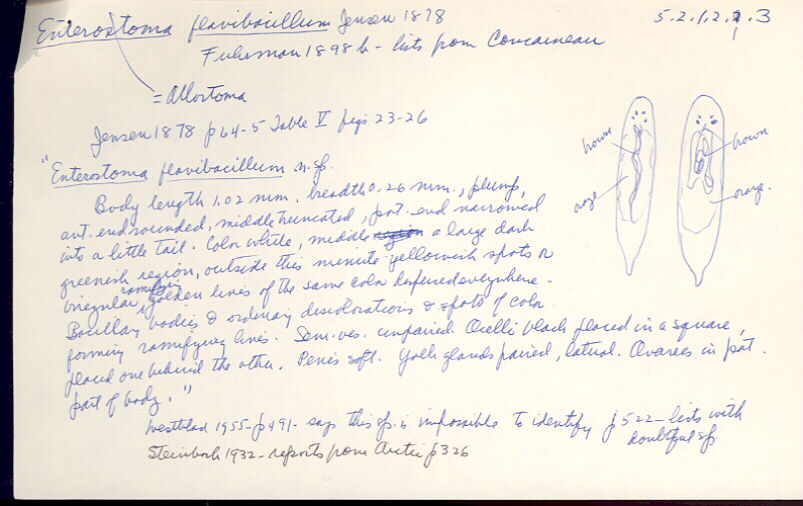 Enterostoma flavibacillum Jensen 1878
5.2.1.2.2.3
1
Fuhrman 1898 b - lists from Concarneau
= Allostoma
Jensen 1878 p 64-5 Table V figs 23-26
"Enterostoma flavibacillum n.sp.
Body length 1.02 mm, breadth 0.26 mm., plump,
ant. end rounded, middle truncated, post. end narrowed
into a little tail. Color white, middle region a large dark
greenish region, outside this minute yellowish spots or
irregular ramifying golden lines of the same color dispersed everywhere.
Bacillary bodies & ordinary discolorations & spots of color
forming ramifying lines. Sem. ves. unpaired. Ocelli black placed in a square,
placed one behind the other. Penis soft. Yolk glands paired, lateral. Ovaries in post.
part of body."
Westblad 1955 - p 491 - says this sp. is impossible to identify p 522 - lists with
doubtful sp
Steinbock 1932 - reports from Arctic p 326
brown
brown
orange